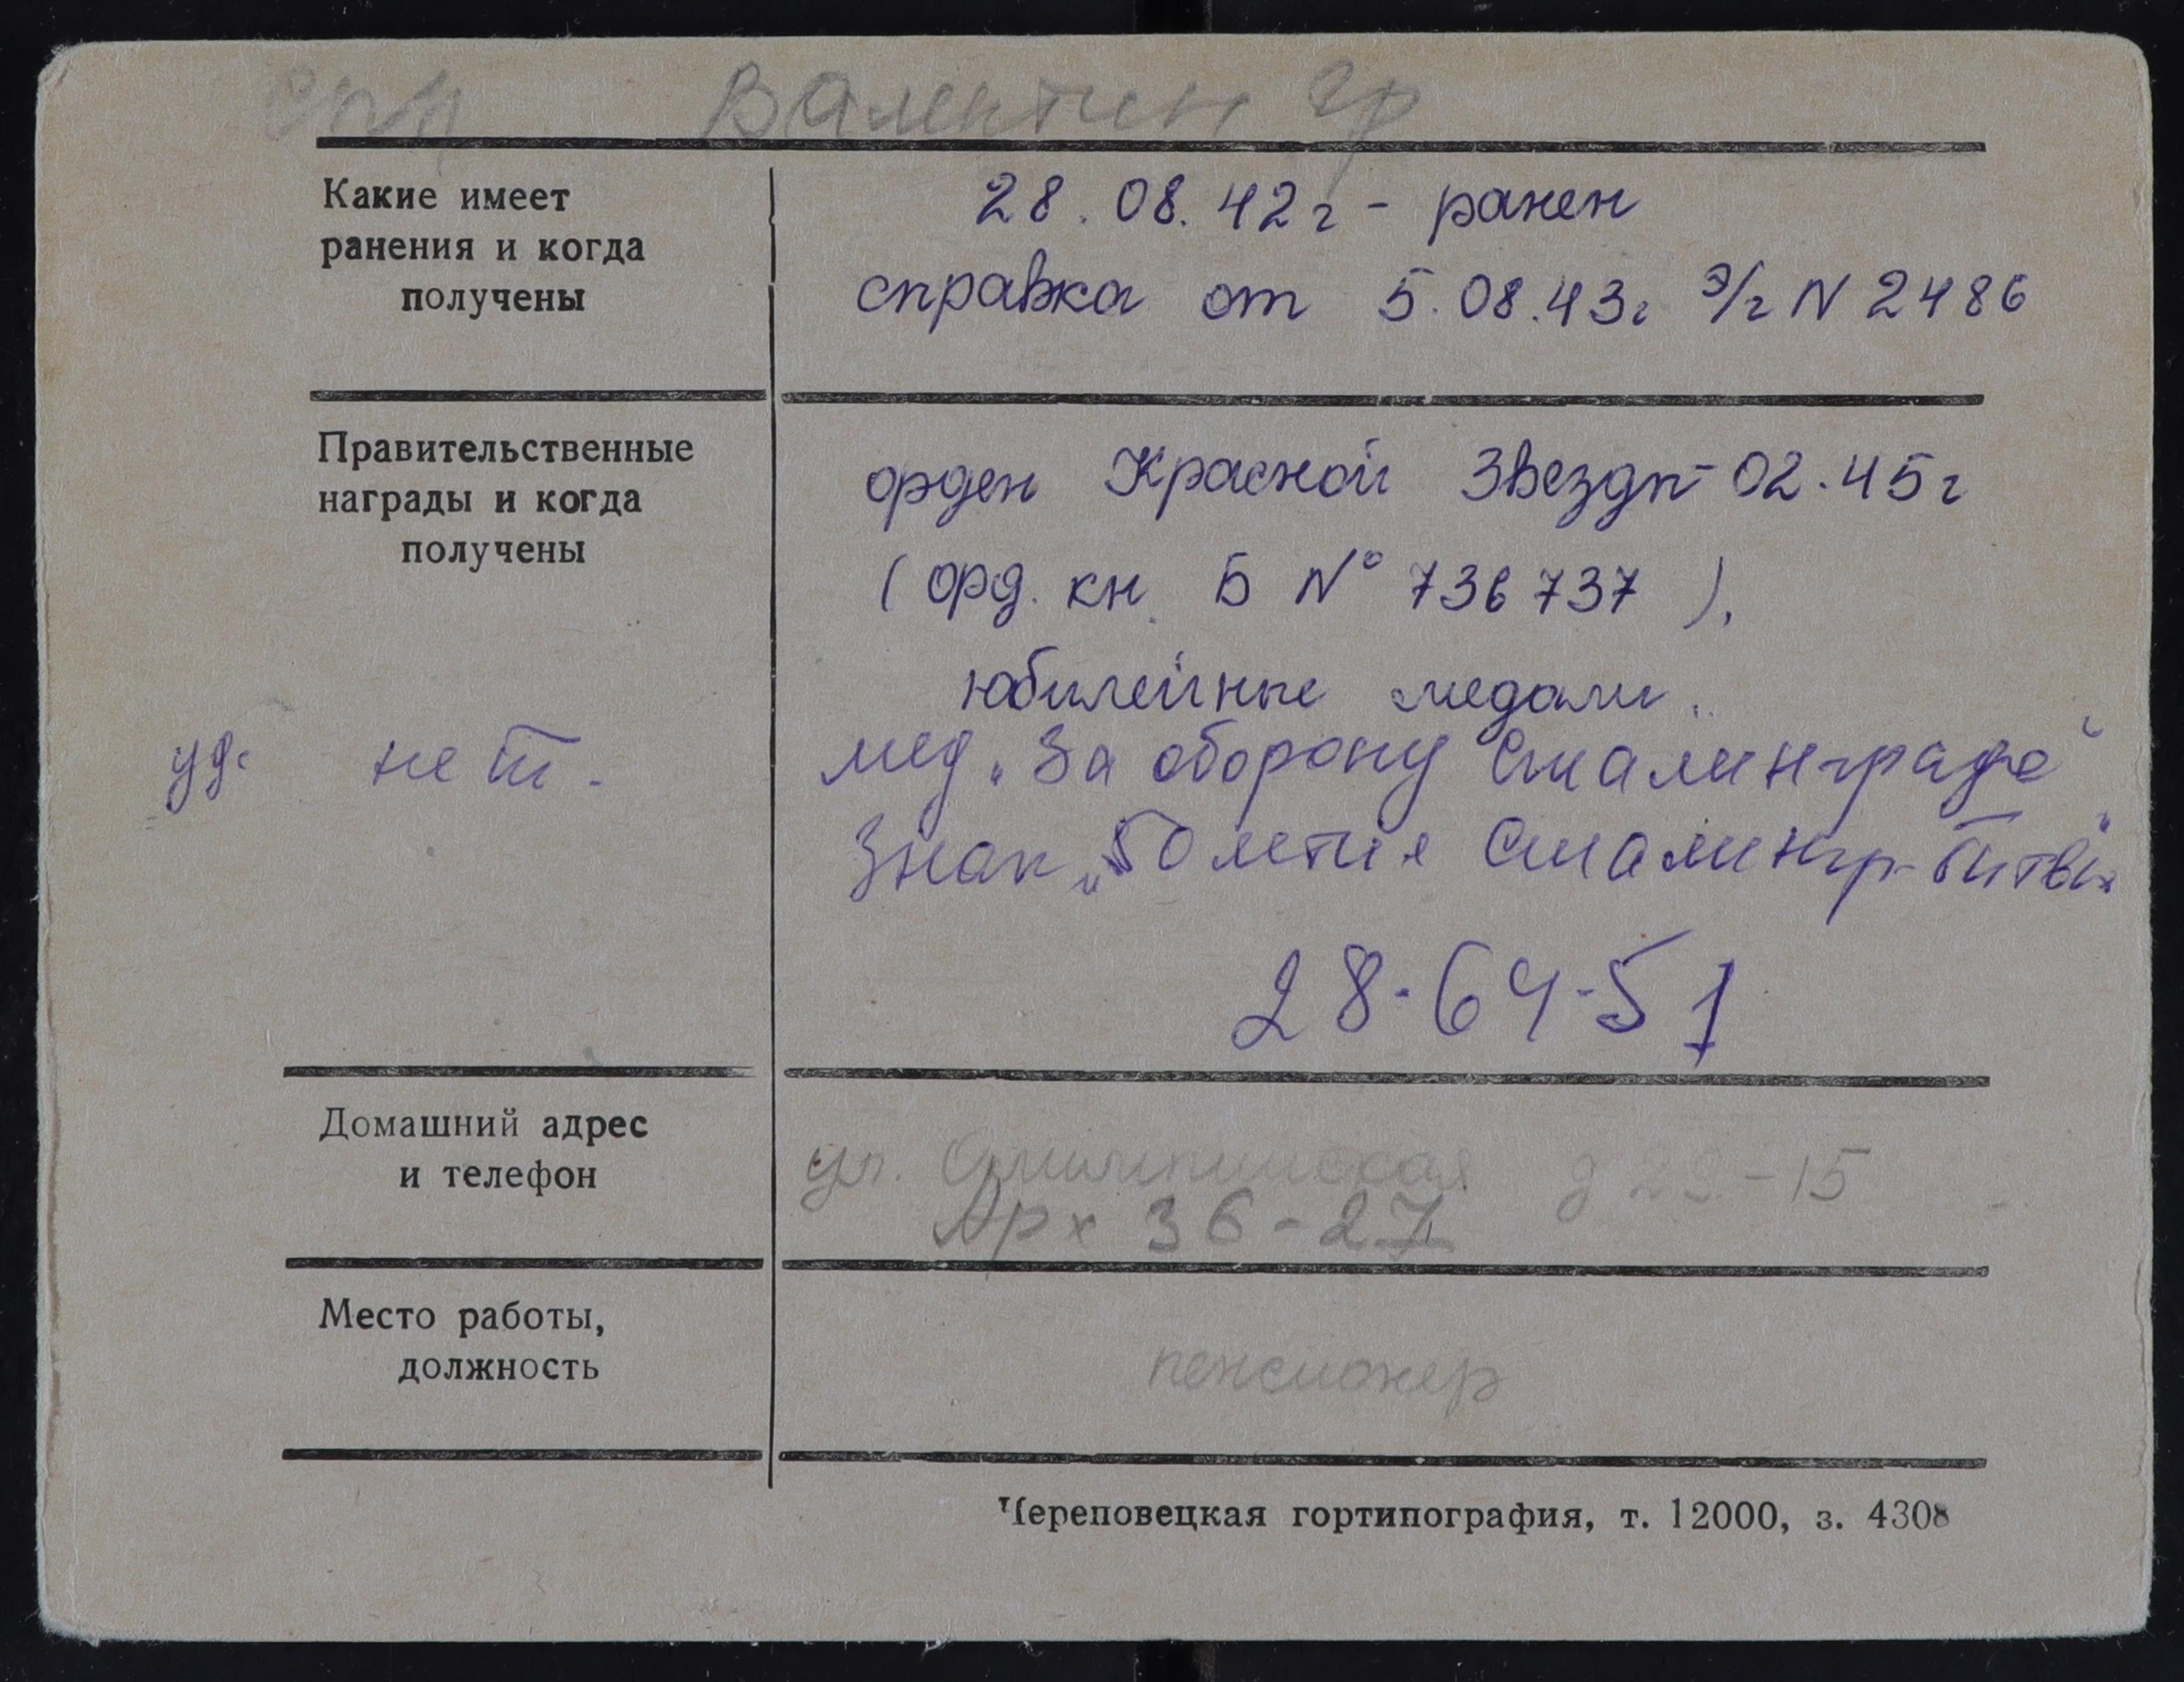 Валентин Гр
Какие имеет
ранения и когда
получены
28.08.42г - ранен
справка от 5.08.43г э/г N 2486
Правительственные
награды и когда
получены
орден Красной Звезды - 02.45г
(орд. кн. Б № 736737),
юбилейные медали.
уд. нет.
мед „За оборону Сталинграда"
Знак „50 летия Сталингр. битвы"
28-64-51
Домашний адрес
и телефон
ул. Олимпийская д 29-15
Арх 36-27
Место работы,
должность
пенсионер
Череповецкая гортипография, т. 12000, з. 4308